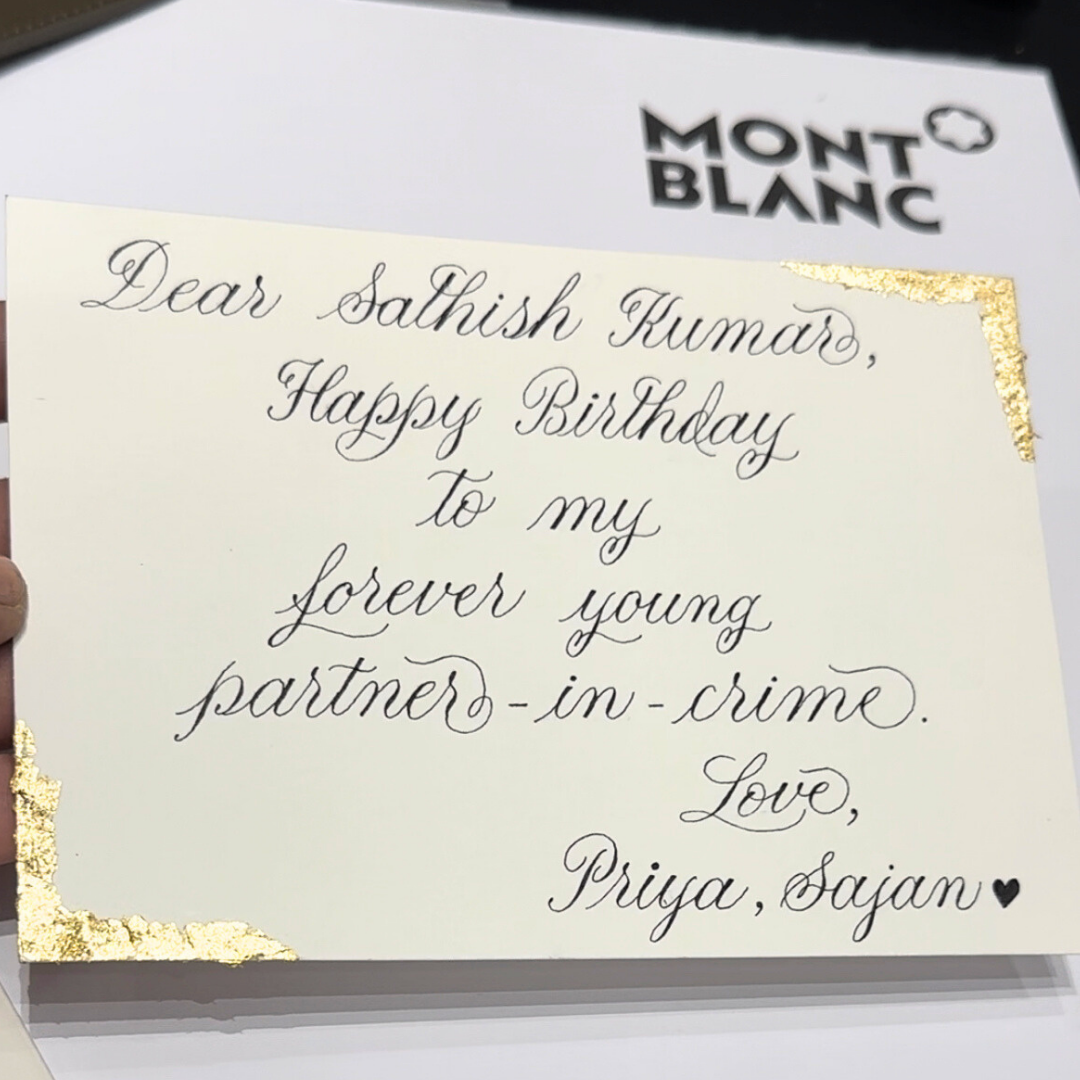 MONT
BLANC
Dear Sathish Kumar,
Happy Birthday
to my
forever young
partner-in-crime.
Love,
Priya, Sajan ♥